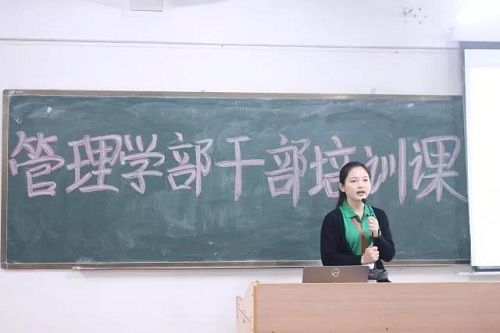 管理学部干部培训课